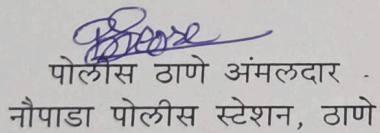 पोलीस ठाणे अंमलदार .
नौपाडा पोलीस स्टेशन, ठाणे